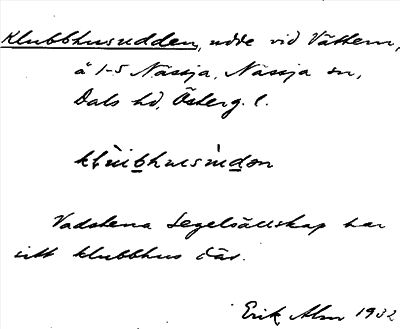 Klubbhusudden, udde vid Vättern,
å 1-5 Nässja, Nässja sn,
Dals hd, Österg. l.
Vadstena Segelsällskap har
sitt klubbhus där.
Erik Alm 1932